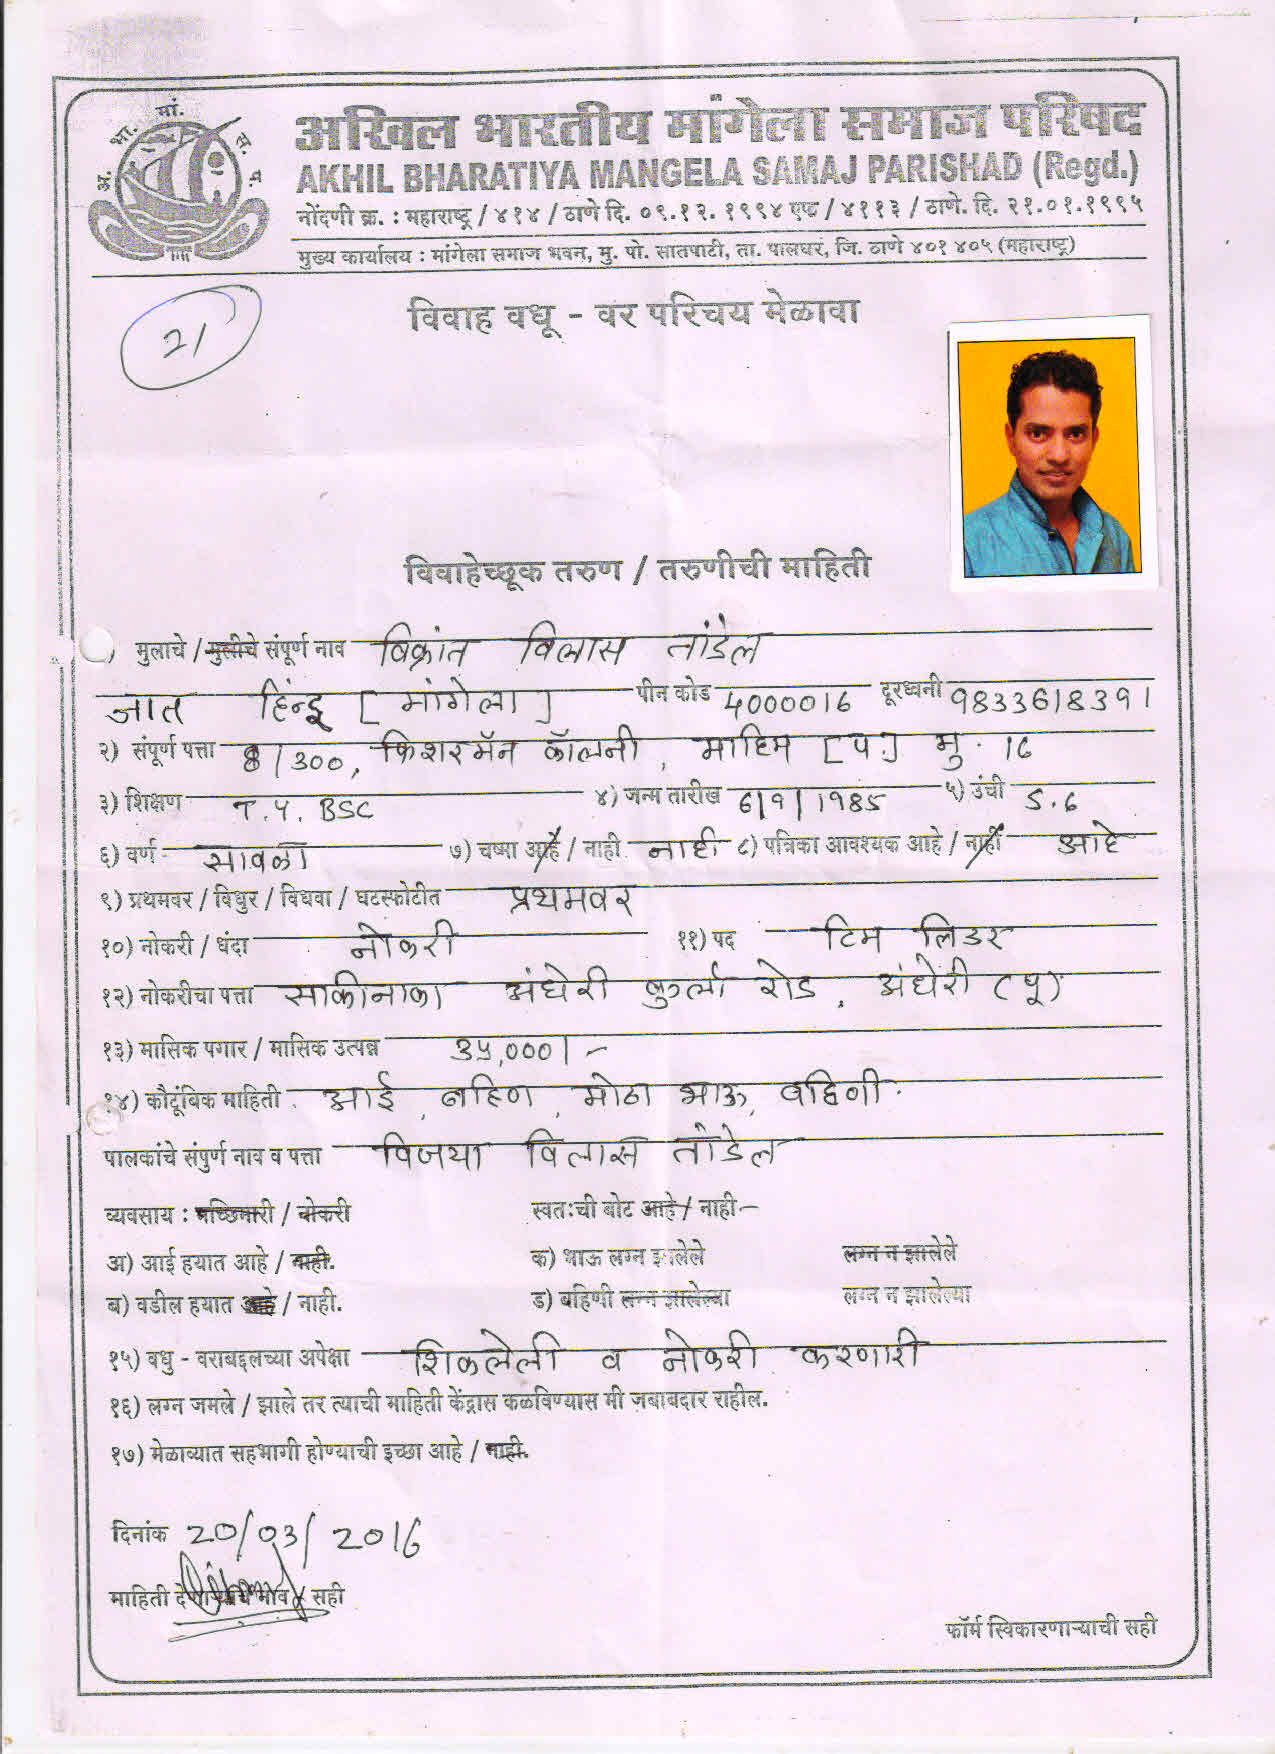 अ. भा. मां. स. प.
अखिल भारतीय मांगेला समाज परिषद
AKHIL BHARATIYA MANGELA SAMAJ PARISHAD (Regd.)
नोंदणी क्र. : महाराष्ट्र / ४१४ / ठाणे दि. ०९.१२.१९९४ एफ / ४११३ / ठाणे. दि. २१.०१.१९९५
मुख्य कार्यालय : मांगेला समाज भवन, मु. पो. सातपाटी, ता. पालघर, जि. ठाणे ४०१ ४०५ (महाराष्ट्र)
21
विवाह वधू - वर परिचय मेळावा
विवाहेच्छूक तरुण / तरुणीची माहिती
मुलाचे / मुलीचे संपूर्ण नाव विक्रांत विलास तांडेल
जात हिन्दू [ मांगेला ] पीन कोड 4000016 दूरध्वनी 9833618391
२) संपूर्ण पत्ता 8/300, फिशरमॅन कॉलनी, माहिम [प.] मु. 16
३) शिक्षण T.Y. BSC ४) जन्म तारीख 6/9/1985 ५) उंची 5.6
६) वर्ण सावळा ७) चष्मा आहे / नाही नाही ८) पत्रिका आवश्यक आहे / नाही आहे
९) प्रथमवर / विधुर / विधवा / घटस्फोटीत प्रथमवर
१०) नोकरी / धंदा नोकरी ११) पद टिम लिडर
१२) नोकरीचा पत्ता साकीनाका अंधेरी कुर्ला रोड, अंधेरी (पू)
१३) मासिक पगार / मासिक उत्पन्न 35,000/-
१४) कौटूंबिक माहिती आई, बहिण, मोठा भाऊ, वहिणी.
पालकांचे संपुर्ण नाव व पत्ता विजया विलास तांडेल
व्यवसाय : मच्छिमारी / नोकरी स्वतःची बोट आहे / नाही -
अ) आई हयात आहे / नाही. क) भाऊ लग्न झालेले लग्न न झालेले
ब) वडील हयात आहे / नाही. ड) बहिणी लग्न झालेल्या लग्न न झालेल्या
१५) वधु - वराबद्दलच्या अपेक्षा शिकलेली व नोकरी करणारी
१६) लग्न जमले / झाले तर त्याची माहिती केंद्रास कळविण्यास मी जबाबदार राहील.
१७) मेळाव्यात सहभागी होण्याची इच्छा आहे / नाही.
दिनांक 20/03/2016
माहिती देणाऱ्याचे नाव / सही
फॉर्म स्विकारणाऱ्याची सही